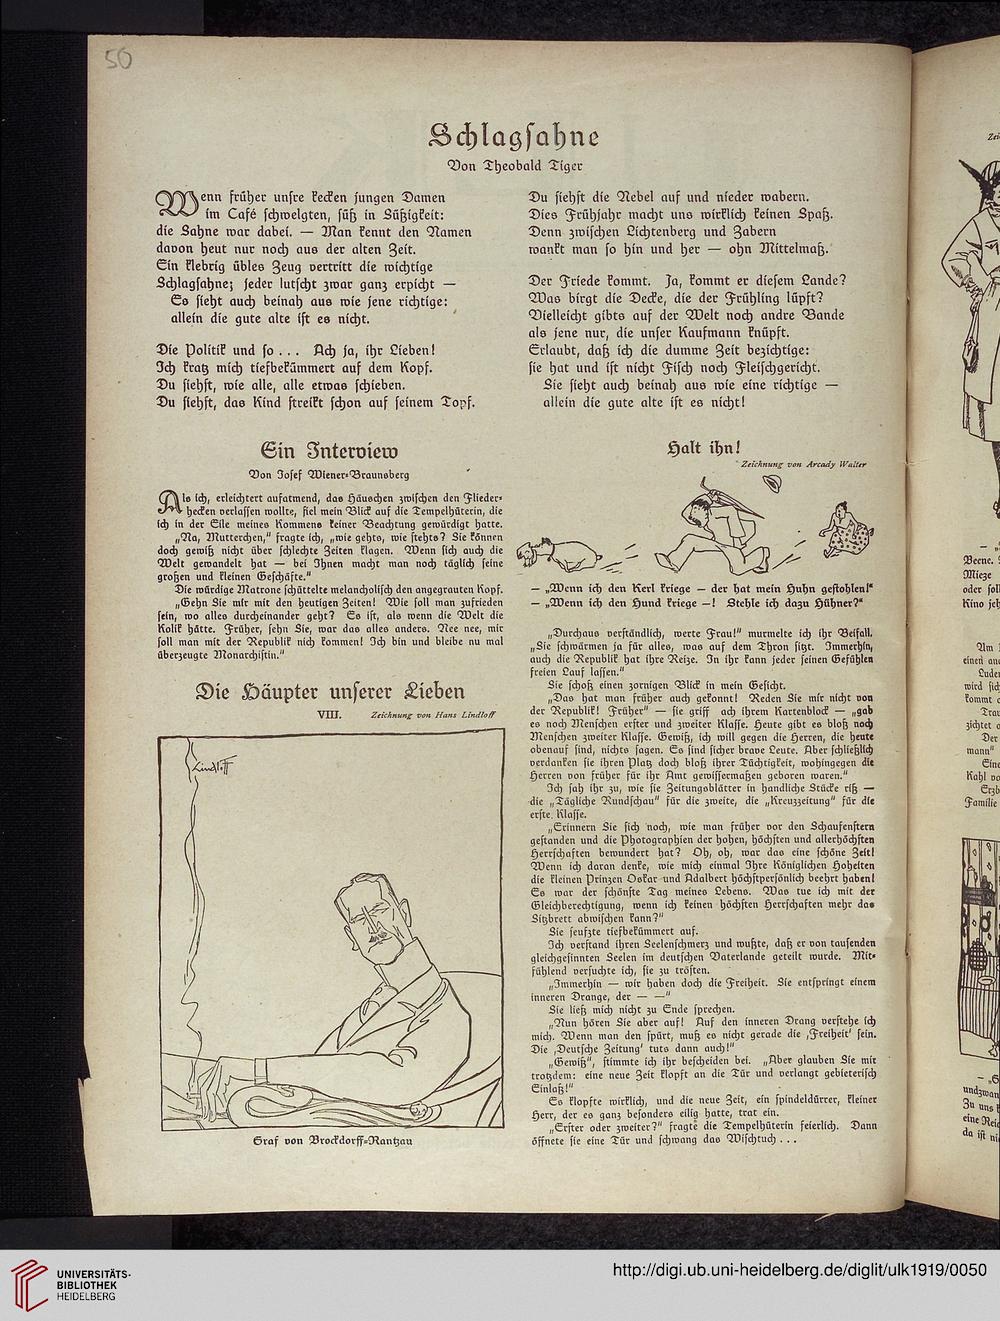 50
Schlagsahne
Von Theobald Tiger
Wenn früher unsre kecken jungen Damen
im Café schwelgten, süß in Süßigkeit:
die Sahne war dabei. — Man kennt den Namen
davon heut nur noch aus der alten Zeit.
Ein klebrig übles Zeug vertritt die wichtige
Schlagsahne; jeder lutscht zwar ganz erpicht —
Es sieht auch beinah aus wie jene richtige:
allein die gute alte ist es nicht.
Die Politik und so . . . Ach ja, ihr Lieben!
Ich kratz mich tiefbekümmert auf dem Kopf.
Du siehst, wie alle, alle etwas schieben.
Du siehst, das Kind streikt schon auf seinem Topf.
Du siehst die Nebel auf und nieder wabern.
Dies Frühjahr macht uns wirklich keinen Spaß.
Denn zwischen Lichtenberg und Zabern
wankt man so hin und her — ohn Mittelmaß.
Der Friede kommt. Ja, kommt er diesem Lande?
Was birgt die Decke, die der Frühling lüpft?
Vielleicht gibts auf der Welt noch andre Bande
als jene nur, die unser Kaufmann knüpft.
Erlaubt, daß ich die dumme Zeit bezichtige:
sie hat und ist nicht Fisch noch Fleischgericht.
Sie sieht auch beinah aus wie eine richtige —
allein die gute alte ist es nicht!
Ein Interview
Von Josef Wiener-Braunsberg
Als ich, erleichtert aufatmend, das Häuschen zwischen den Flieder-
hecken verlassen wollte, fiel mein Blick auf die Tempelhüterin, die
ich in der Eile meines Kommens keiner Beachtung gewürdigt hatte.
„Na, Mutterchen,“ fragte ich, „wie gehts, wie stehts? Sie können
doch gewiß nicht über schlechte Zeiten klagen. Wenn sich auch die
Welt gewandelt hat — bei Ihnen macht man noch täglich seine
großen und kleinen Geschäfte.“
Die würdige Matrone schüttelte melancholisch den angegrauten Kopf.
„Gehn Sie mir mit den heutigen Zeiten! Wie soll man zufrieden
sein, wo alles durcheinander geht? Es ist, als wenn die Welt die
Kolik hätte. Früher, sehn Sie, war das alles anders. Nee nee, mir
soll man mit der Republik nich kommen! Ich bin und bleibe nu mal
überzeugte Monarchistin.“
Die Häupter unserer Lieben
VIII. Zeichnung von Hans Lindloff
Lindloff
Graf von Brockdorff-Rantzau
Halt ihn!
Zeichnung von Arcady Walter
— „Wenn ich den Kerl kriege — der hat mein Huhn gestohlen!“
— „Wenn ich den Hund kriege —! Stehle ich dazu Hühner?“
„Durchaus verständlich, werte Frau!“ murmelte ich ihr Beifall.
„Sie schwärmen ja für alles, was auf dem Thron sitzt. Immerhin,
auch die Republik hat ihre Reize. In ihr kann jeder seinen Gefühlen
freien Lauf lassen.“
Sie schoß einen zornigen Blick in mein Gesicht.
„Das hat man früher auch gekonnt! Reden Sie mir nicht von
der Republik! Früher“ — sie griff ach ihrem Kartenblock — „gab
es noch Menschen erster und zweiter Klasse. Heute gibt es bloß noch
Menschen zweiter Klasse. Gewiß, ich will gegen die Herren, die heute
obenauf sind, nichts sagen. Es sind sicher brave Leute. Aber schließlich
verdanken sie ihren Platz doch bloß ihrer Tüchtigkeit, wohingegen die
Herren von früher für ihr Amt gewissermaßen geboren waren.“
Ich sah ihr zu, wie sie Zeitungsblätter in handliche Stücke riß —
die „Tägliche Rundschau“ für die zweite, die „Kreuzzeitung“ für die
erste Klasse.
„Erinnern Sie sich noch, wie man früher vor den Schaufenstern
gestanden und die Photographien der hohen, höchsten und allerhöchsten
Herrschaften bewundert hat? Oh, oh, war das eine schöne Zeit!
Wenn ich daran denke, wie mich einmal Ihre Königlichen Hoheiten
die kleinen Prinzen Oskar und Adalbert höchstpersönlich beehrt haben!
Es war der schönste Tag meines Lebens. Was tue ich mit der
Gleichberechtigung, wenn ich keinen höchsten Herrschaften mehr das
Sitzbrett abwischen kann?“
Sie seufzte tiefbekümmert auf.
Ich verstand ihren Seelenschmerz und wußte, daß er von tausenden
gleichgesinnten Seelen im deutschen Vaterlande geteilt wurde. Mit-
fühlend versuchte ich, sie zu trösten.
„Immerhin — wir haben doch die Freiheit. Sie entspringt einem
inneren Drange, der — —“
Sie ließ mich nicht zu Ende sprechen.
„Nun hören Sie aber auf! Auf den inneren Drang verstehe ich
mich. Wenn man den spürt, muß es nicht gerade die ‚Freiheit‘ sein.
Die ‚Deutsche Zeitung‘ tuts dann auch!“
„Gewiß“, stimmte ich ihr bescheiden bei. „Aber glauben Sie mir
trotzdem: eine neue Zeit klopft an die Tür und verlangt gebieterisch
Einlaß!“
Es klopfte wirklich, und die neue Zeit, ein spindeldürrer, kleiner
Herr, der es ganz besonders eilig hatte, trat ein.
„Erster oder zweiter?“ fragte die Tempelhüterin feierlich. Dann
öffnete sie eine Tür und schwang das Wischtuch . . .
UNIVERSITÄTS-
BIBLIOTHEK
HEIDELBERG
http://digi.ub.uni-heidelberg.de/diglit/ulk1919/0050